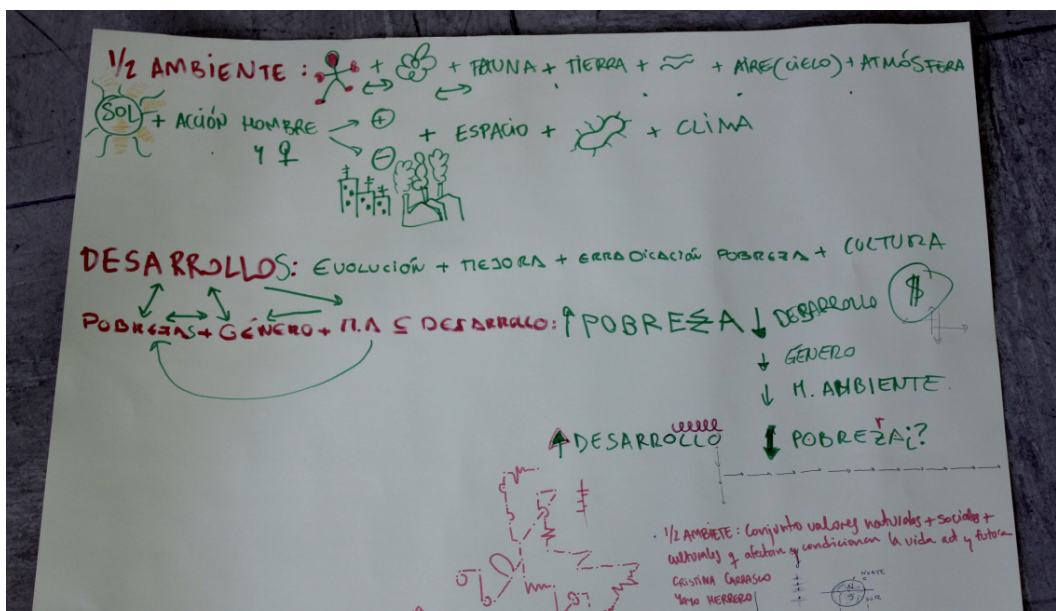 1/2 AMBIENTE: + + FAUNA + TIERRA + + AIRE (CIELO) + ATMÓSFERA
SOL + ACCIÓN HOMBRE + ESPACIO + + CLIMA
Y ♀
DESARROLLOS: EVOLUCIÓN + MEJORA + ERRADICACIÓN POBREZA + CULTURA
POBREZAS + GÉNERO + M.A ≤ DESARROLLO: ↑ POBREZA ↓ DESARROLLO $
↓ GÉNERO
↓ M. AMBIENTE.
↑ DESARROLLO ↓ POBREZA¿?
1/2 AMBIETE: Conjunto valores naturales + sociales +
culturales q afectan y condicionan la vida act y futura
CRISTINA CARRASCO
YAYO HERRERO
NORTE
N
S